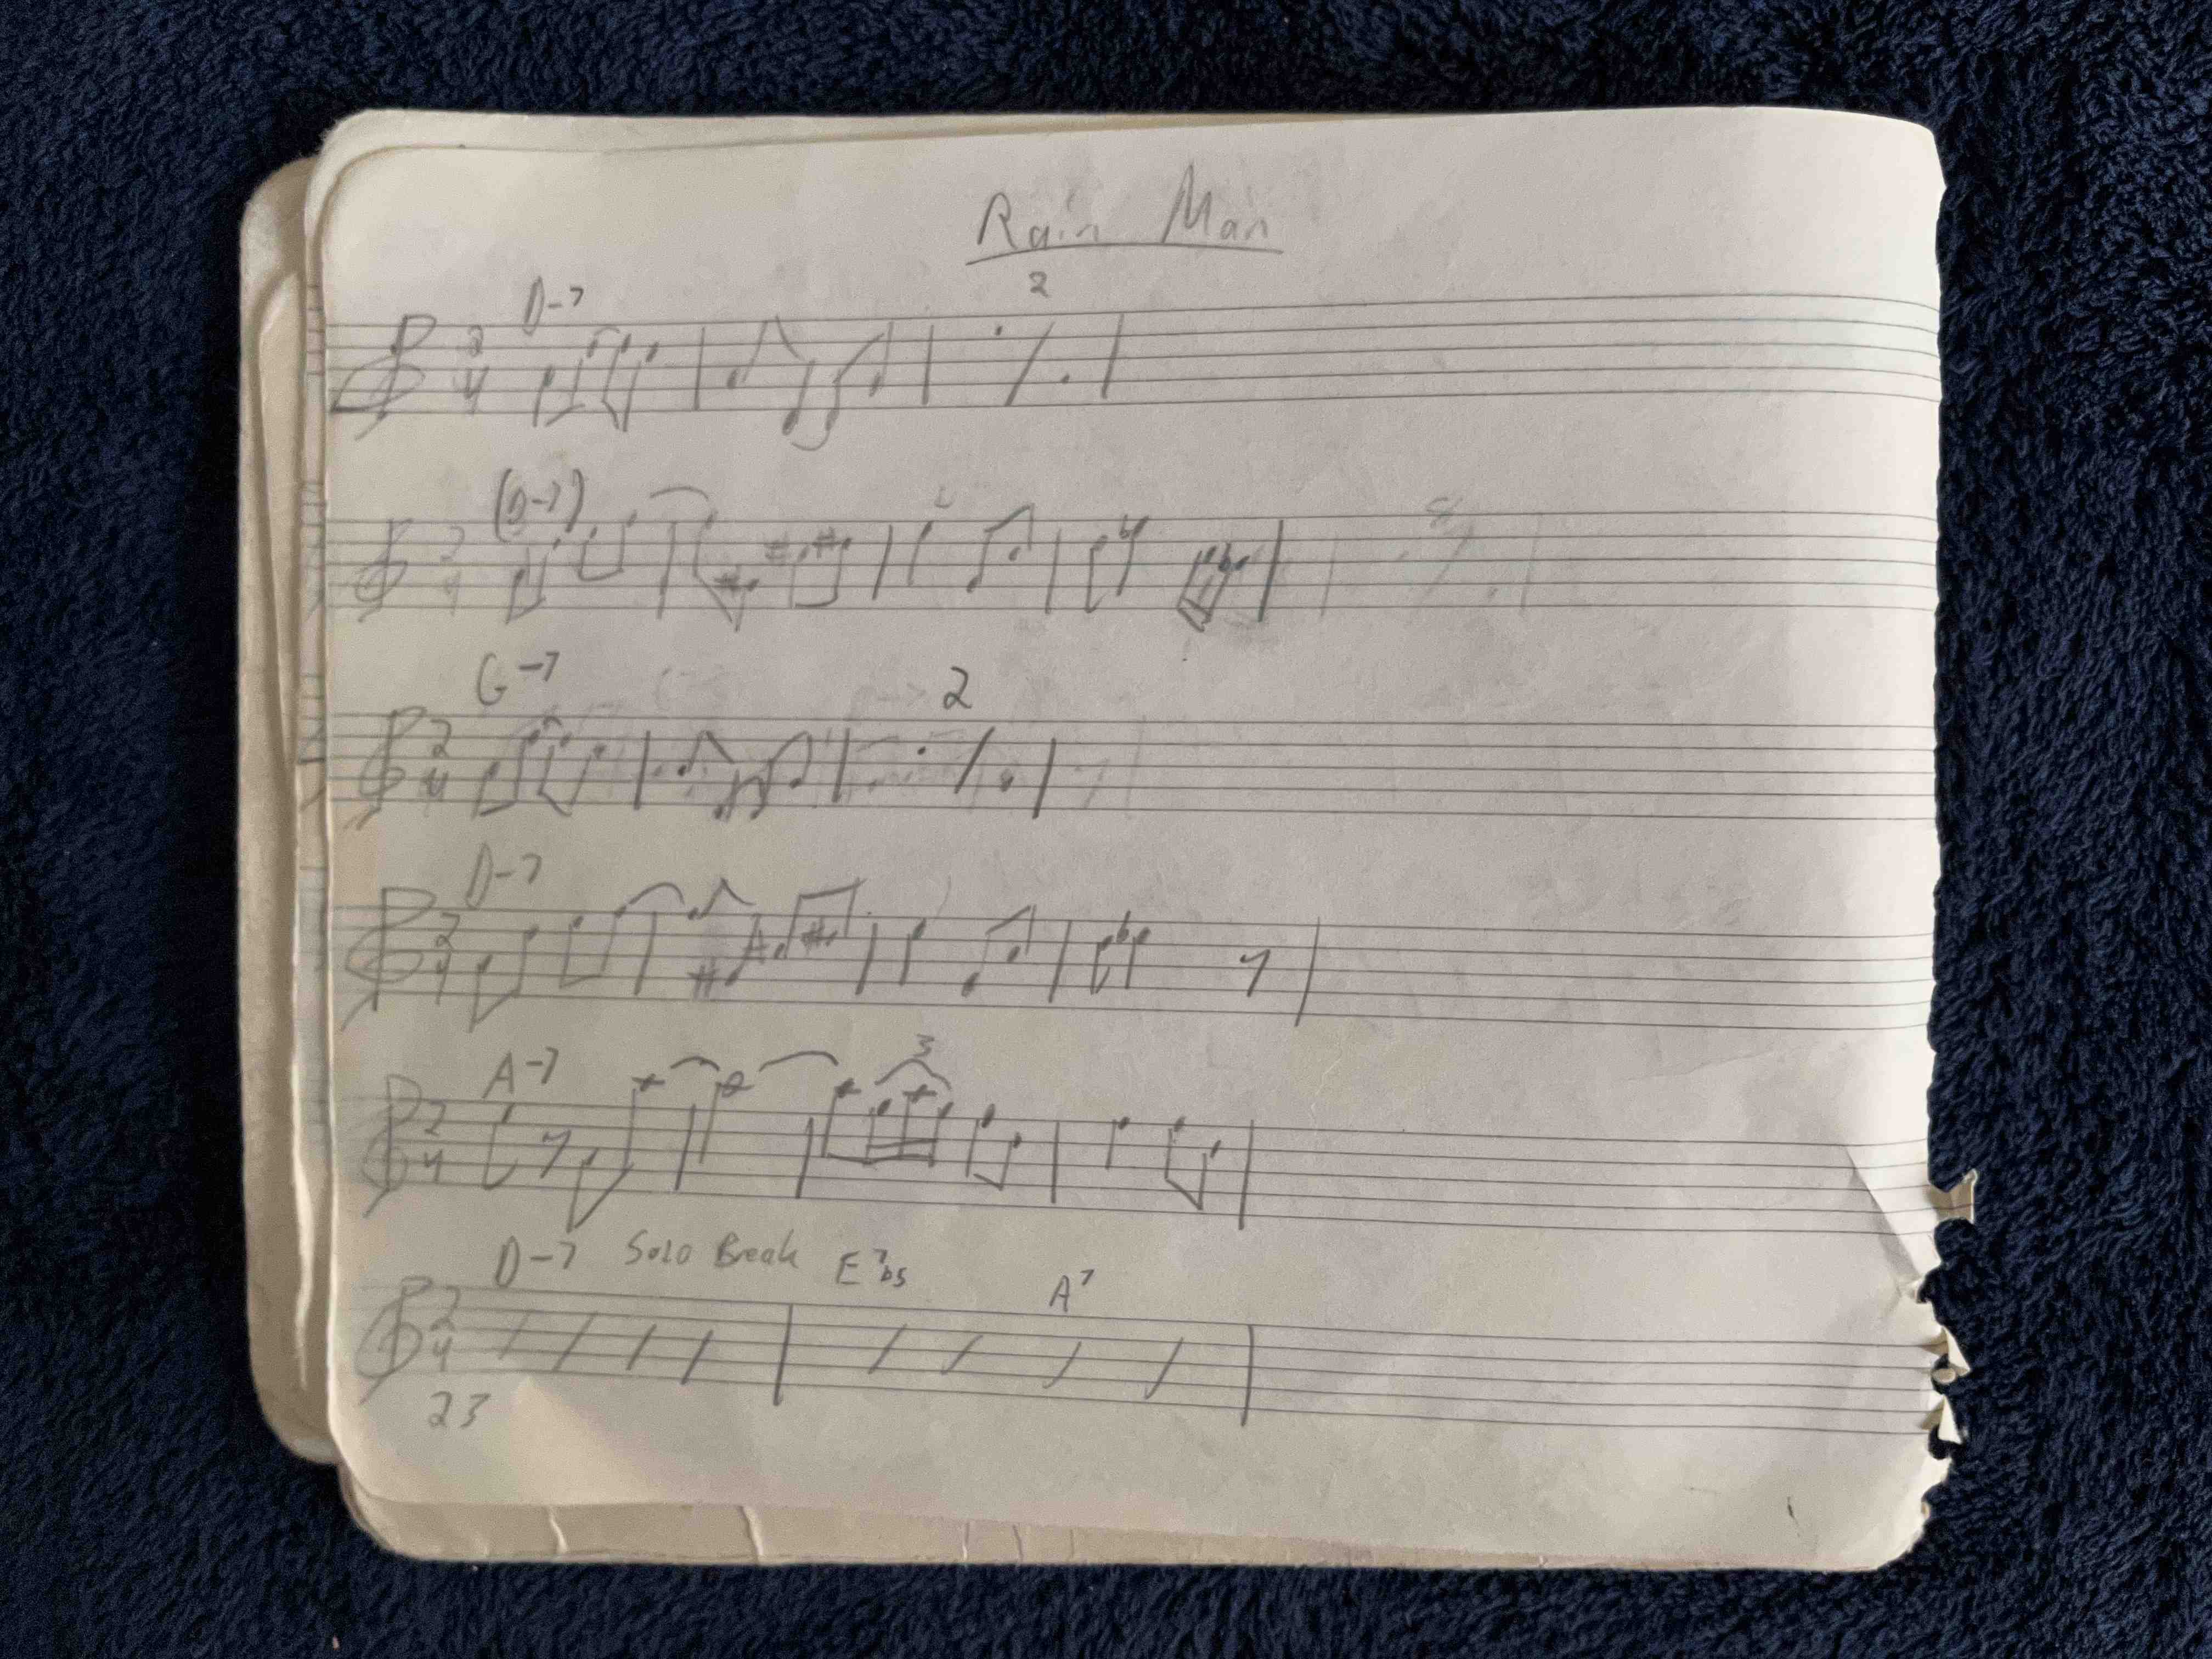 Rain Man
2
D-7
2
4
(D-7)
2
4
G-7 2
2
4
D-7
2
4
A-7 3
2
4
D-7 Solo Break E7b5 A7
2
4
23